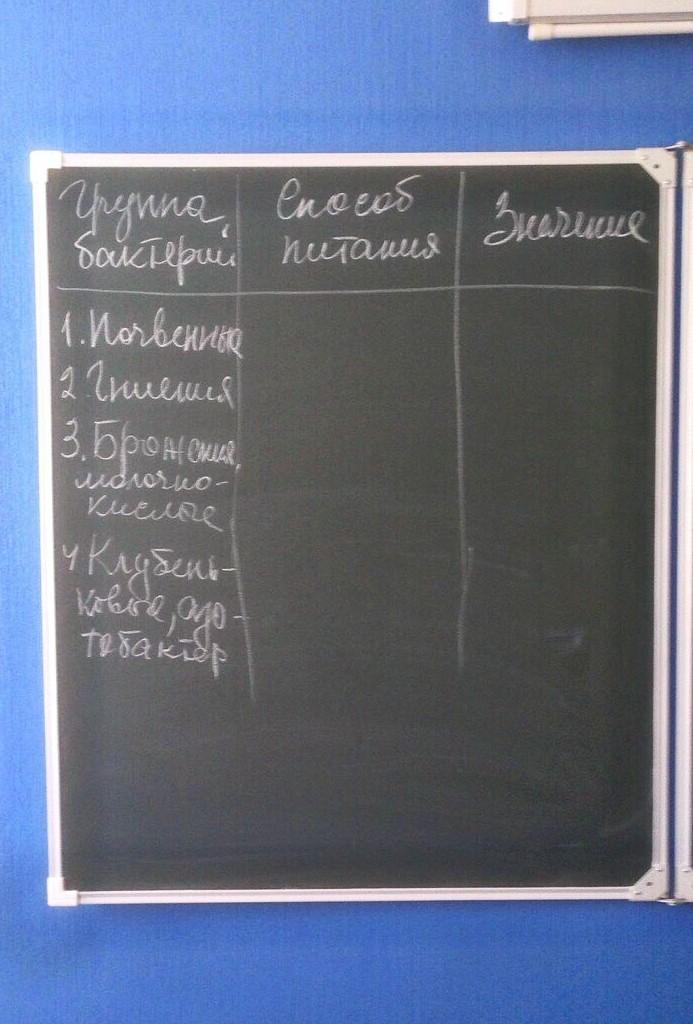 Группа
бактерий
Способ
питания
Значение
1. Почвенные
2. Гниения
3. Брожения,
молочно-
кислые
4 Клубень-
ковые, азо-
тобактер